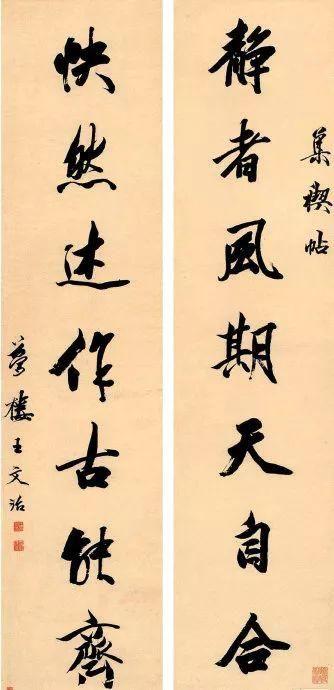 集禊帖
静者風期天自合
怏然述作古能齊
夢樓王文治